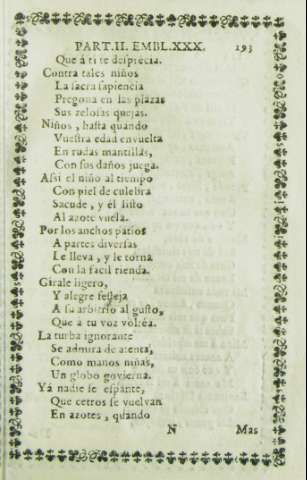 PART.II. EMBL.XXX. 193
Que á ti te desprecia.
Contra tales niños
La sacra sapiencia
Pregona en las plazas
Sus zelosas quejas.
Niños, hasta quándo
Vuestra edad envuelta
En rudas mantillas,
Con sus daños juega.
Assi el niño al tiempo
Con piel de culebra
Sacude, y él listo
Al azote vuela.
Por los anchos patios
A partes diversas
Le lleva, y le torna
Con la facil rienda.
Girale ligero,
Y alegre festeja
A su arbitrio al gusto,
Que a tu voz voltéa.
La turba ignorante
Se admira de atenta,
Como manos niñas,
Un globo govierna.
Yá nadie se espante,
Que cetros se vuelvan
En azotes, quando
N Mas